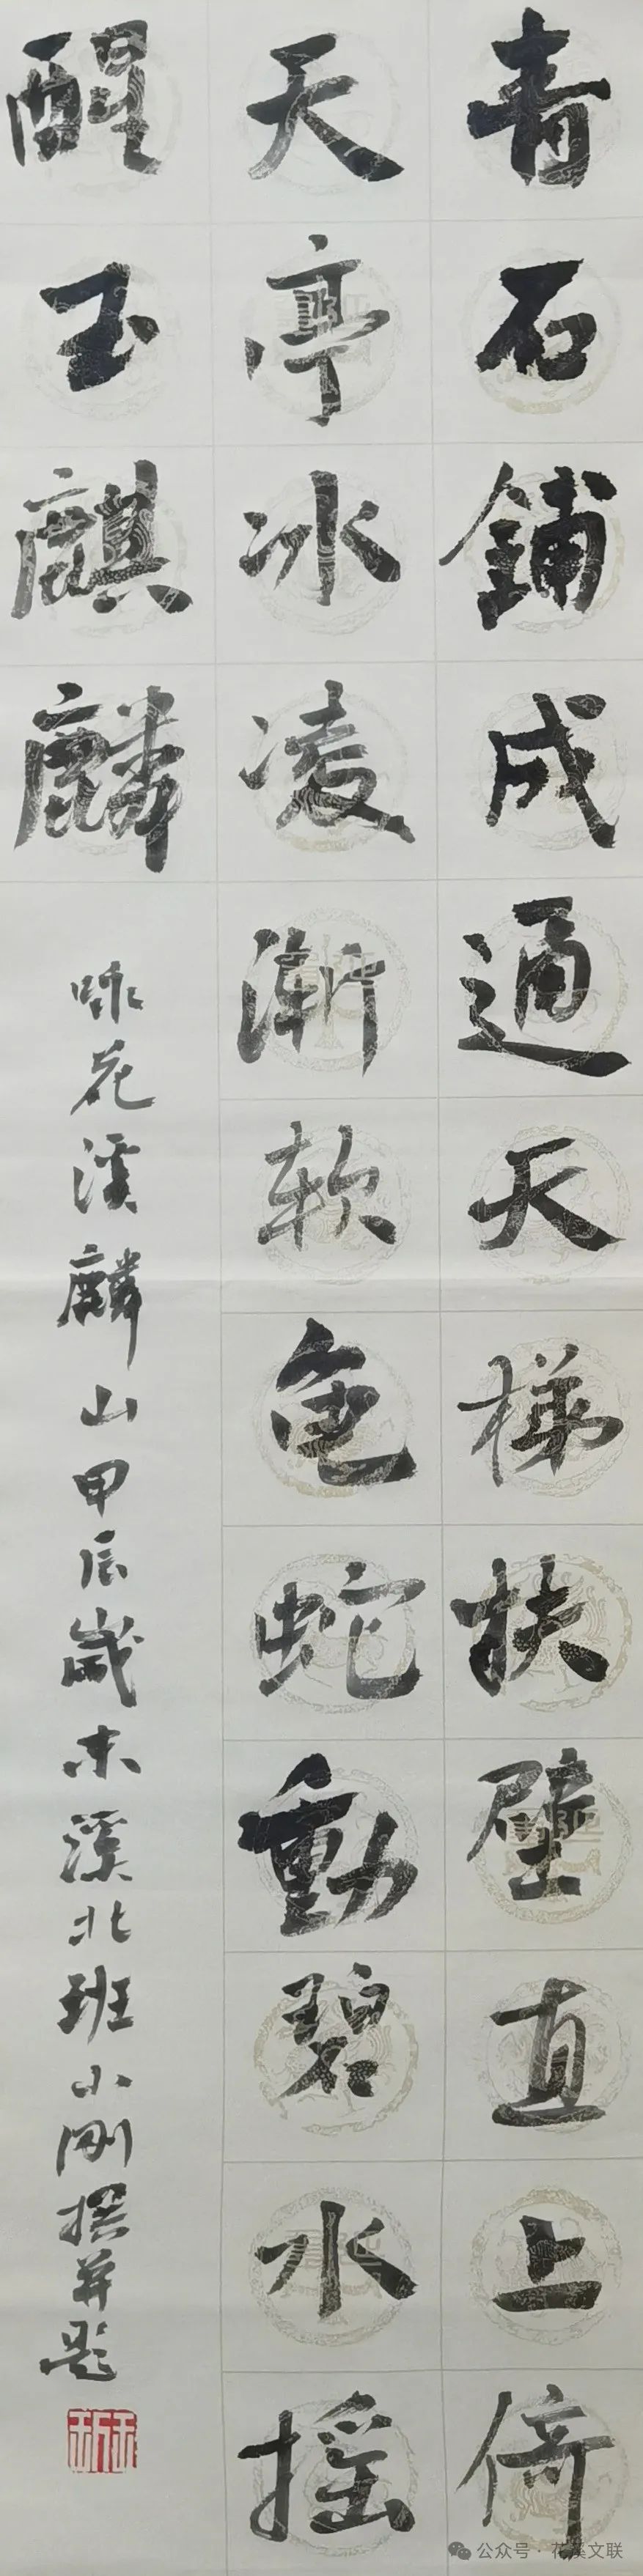 青石鋪成通天梯扶壁直上倚
天亭冰凌漸软龟蛇動碧水摇
醒玉麒麟
咏花溪麟山甲辰歲末溪北班小刚撰并题
公众号·花溪文联